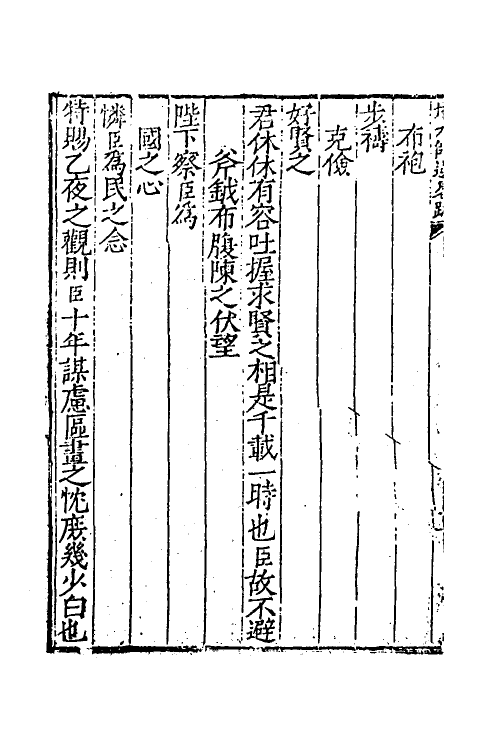 布袍
步禱
克儉
好賢之
君休休有容吐握求賢之相是千載一時也臣故不避
斧鉞布腹陳之伏望
陛下察臣爲
國之心
憐臣爲民之念
特賜乙夜之觀則臣十年謀慮區畫之忱庶幾少白也